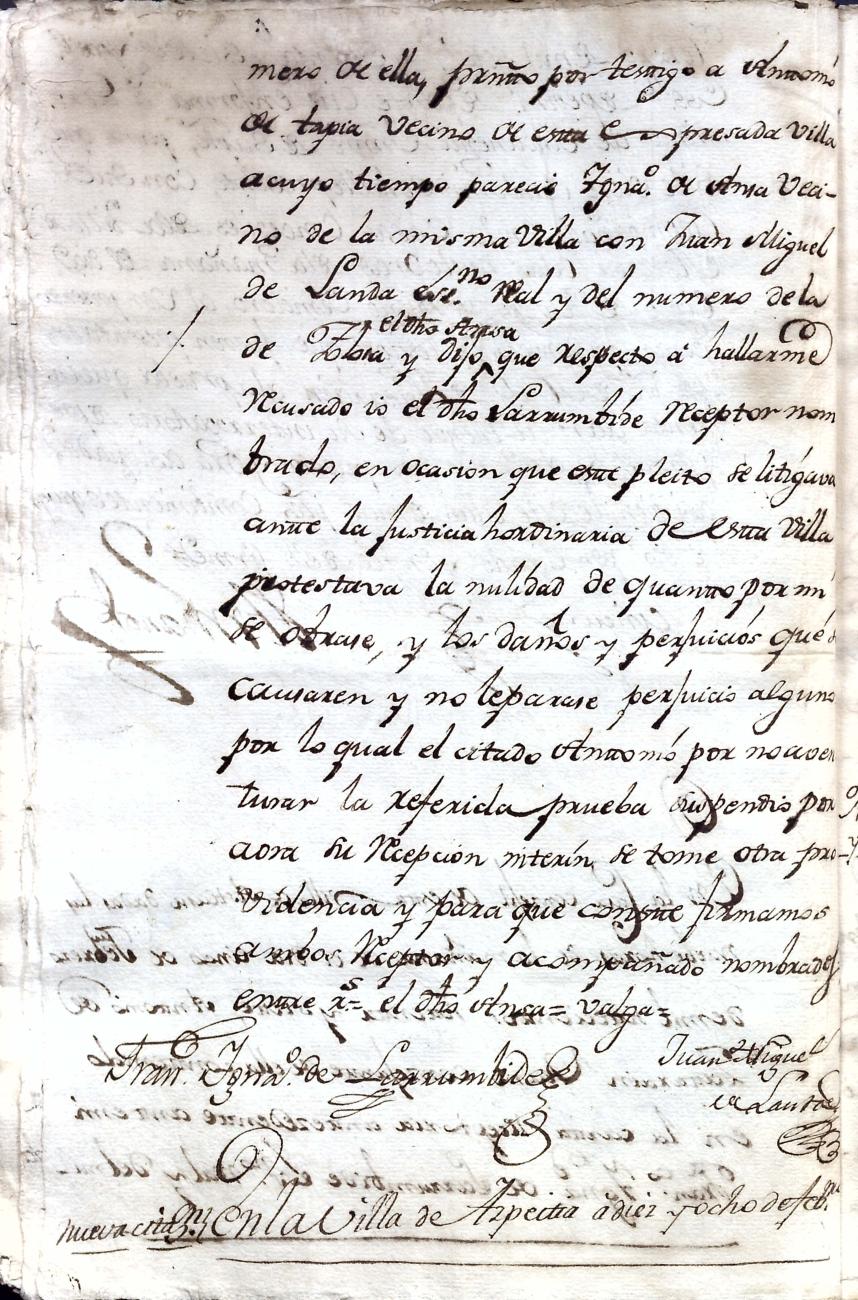 mero de ella, prnto por testigo a Antonio
de tapia Vecino de esta expresada Villa
acuyo tiempo parecio Ygnaº. de Ansa Veci-
no de la misma Villa con Juan Miguel
de Landa Esc.no Real y del numero de la
el dho Ansa
de y dijo que respecto a hallarme
Recusado io el dho Larrumbide Receptor nom
brado, en ocasion que este pleito se litigava
ante la Justicia hordinaria de esta Villa
protestava la nulidad de quanto por mi
se obrase, y los daños y perjuicios que
causaren y no leparase perjuicio alguno
por lo qual el citado Antonio por no aven
turar la referida prueba suspendio por
aora su Recepcion interin se tome otra pro-
videncia y para que conste firmamos
ambos Receptor y acompañado nombrados
entre rs= el dho Ansa= valga=
Fran.co Ygnaº. de Larrumbide
Juan Miguel
de Landa
nueva citaon
en la Villa de Azpeitia a diez y ocho de feb.